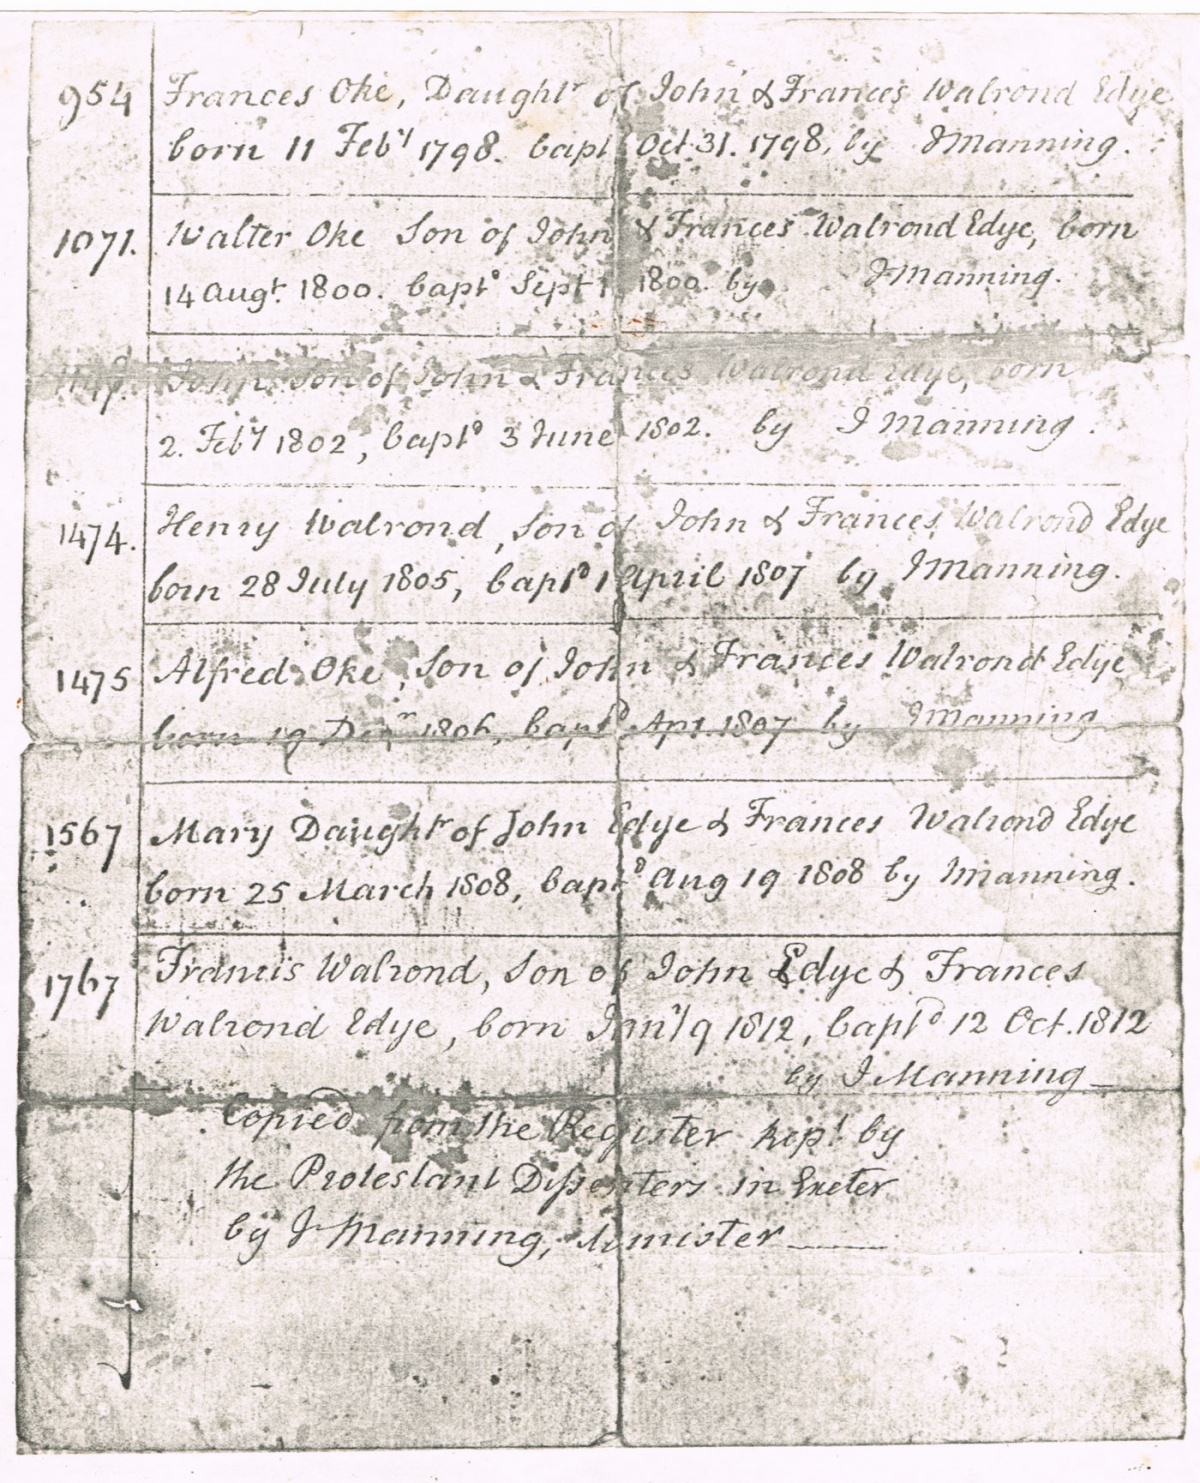 954 Frances Oke, Daughtr of John & Frances Walrond Edye
born 11 Feby 1798. bapt Oct 31. 1798, by J Manning.
1071. Walter Oke Son of John & Frances Walrond Edye, born
14 Augt. 1800. bapto Sept 1 1800. by J Manning.
Son of John & Frances Walrond Edye, born
2. Feby 1802, baptd 3 June 1802. by J Manning.
1474. Henry Walrond, Son of John & Frances Walrond Edye
born 28 July 1805, baptd 1 April 1807 by J Manning.
1475 Alfred Oke, Son of John & Frances Walrond Edye
born 19 1806, baptd Apl. 1807 by J Manning
1567 Mary Daughtr of John Edye & Frances Walrond Edye
born 25 March 1808, baptd Aug 19 1808 by J Manning.
1767 Francis Walrond, Son of John Edye & Frances
Walrond Edye, born Jany 9 1812, baptd 12 Oct. 1812
by J Manning
Copied from the Register kept by
the Protestant Dissenters in Exeter
by J Manning, Minister